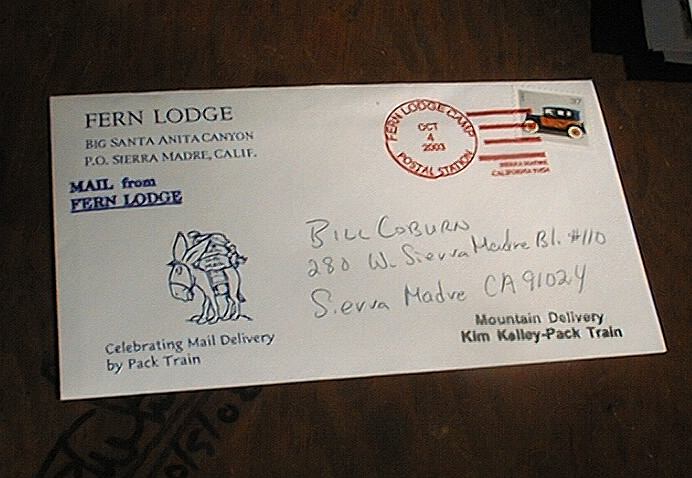 FERN LODGE
BIG SANTA ANITA CANYON
P.O. SIERRA MADRE, CALIF.
MAIL from
FERN LODGE
FERN LODGE CAMP
OCT
4
2003
POSTAL STATION
37
SIERRA MADRE
CALIFORNIA 91024
BILL COBURN
280 W. Sierra Madre Bl. #110
Sierra Madre CA 91024
Mountain Delivery
Kim Kelley-Pack Train
Celebrating Mail Delivery
by Pack Train